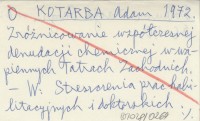 O KOTARBA Adam 1972.
Zróżnicowanie współczesnej
denudacji chemicznej w wa-
piennych Tatrach Zachodnich.
- W: Streszczenia prac habi-
litacyjnych i doktorskich :/.